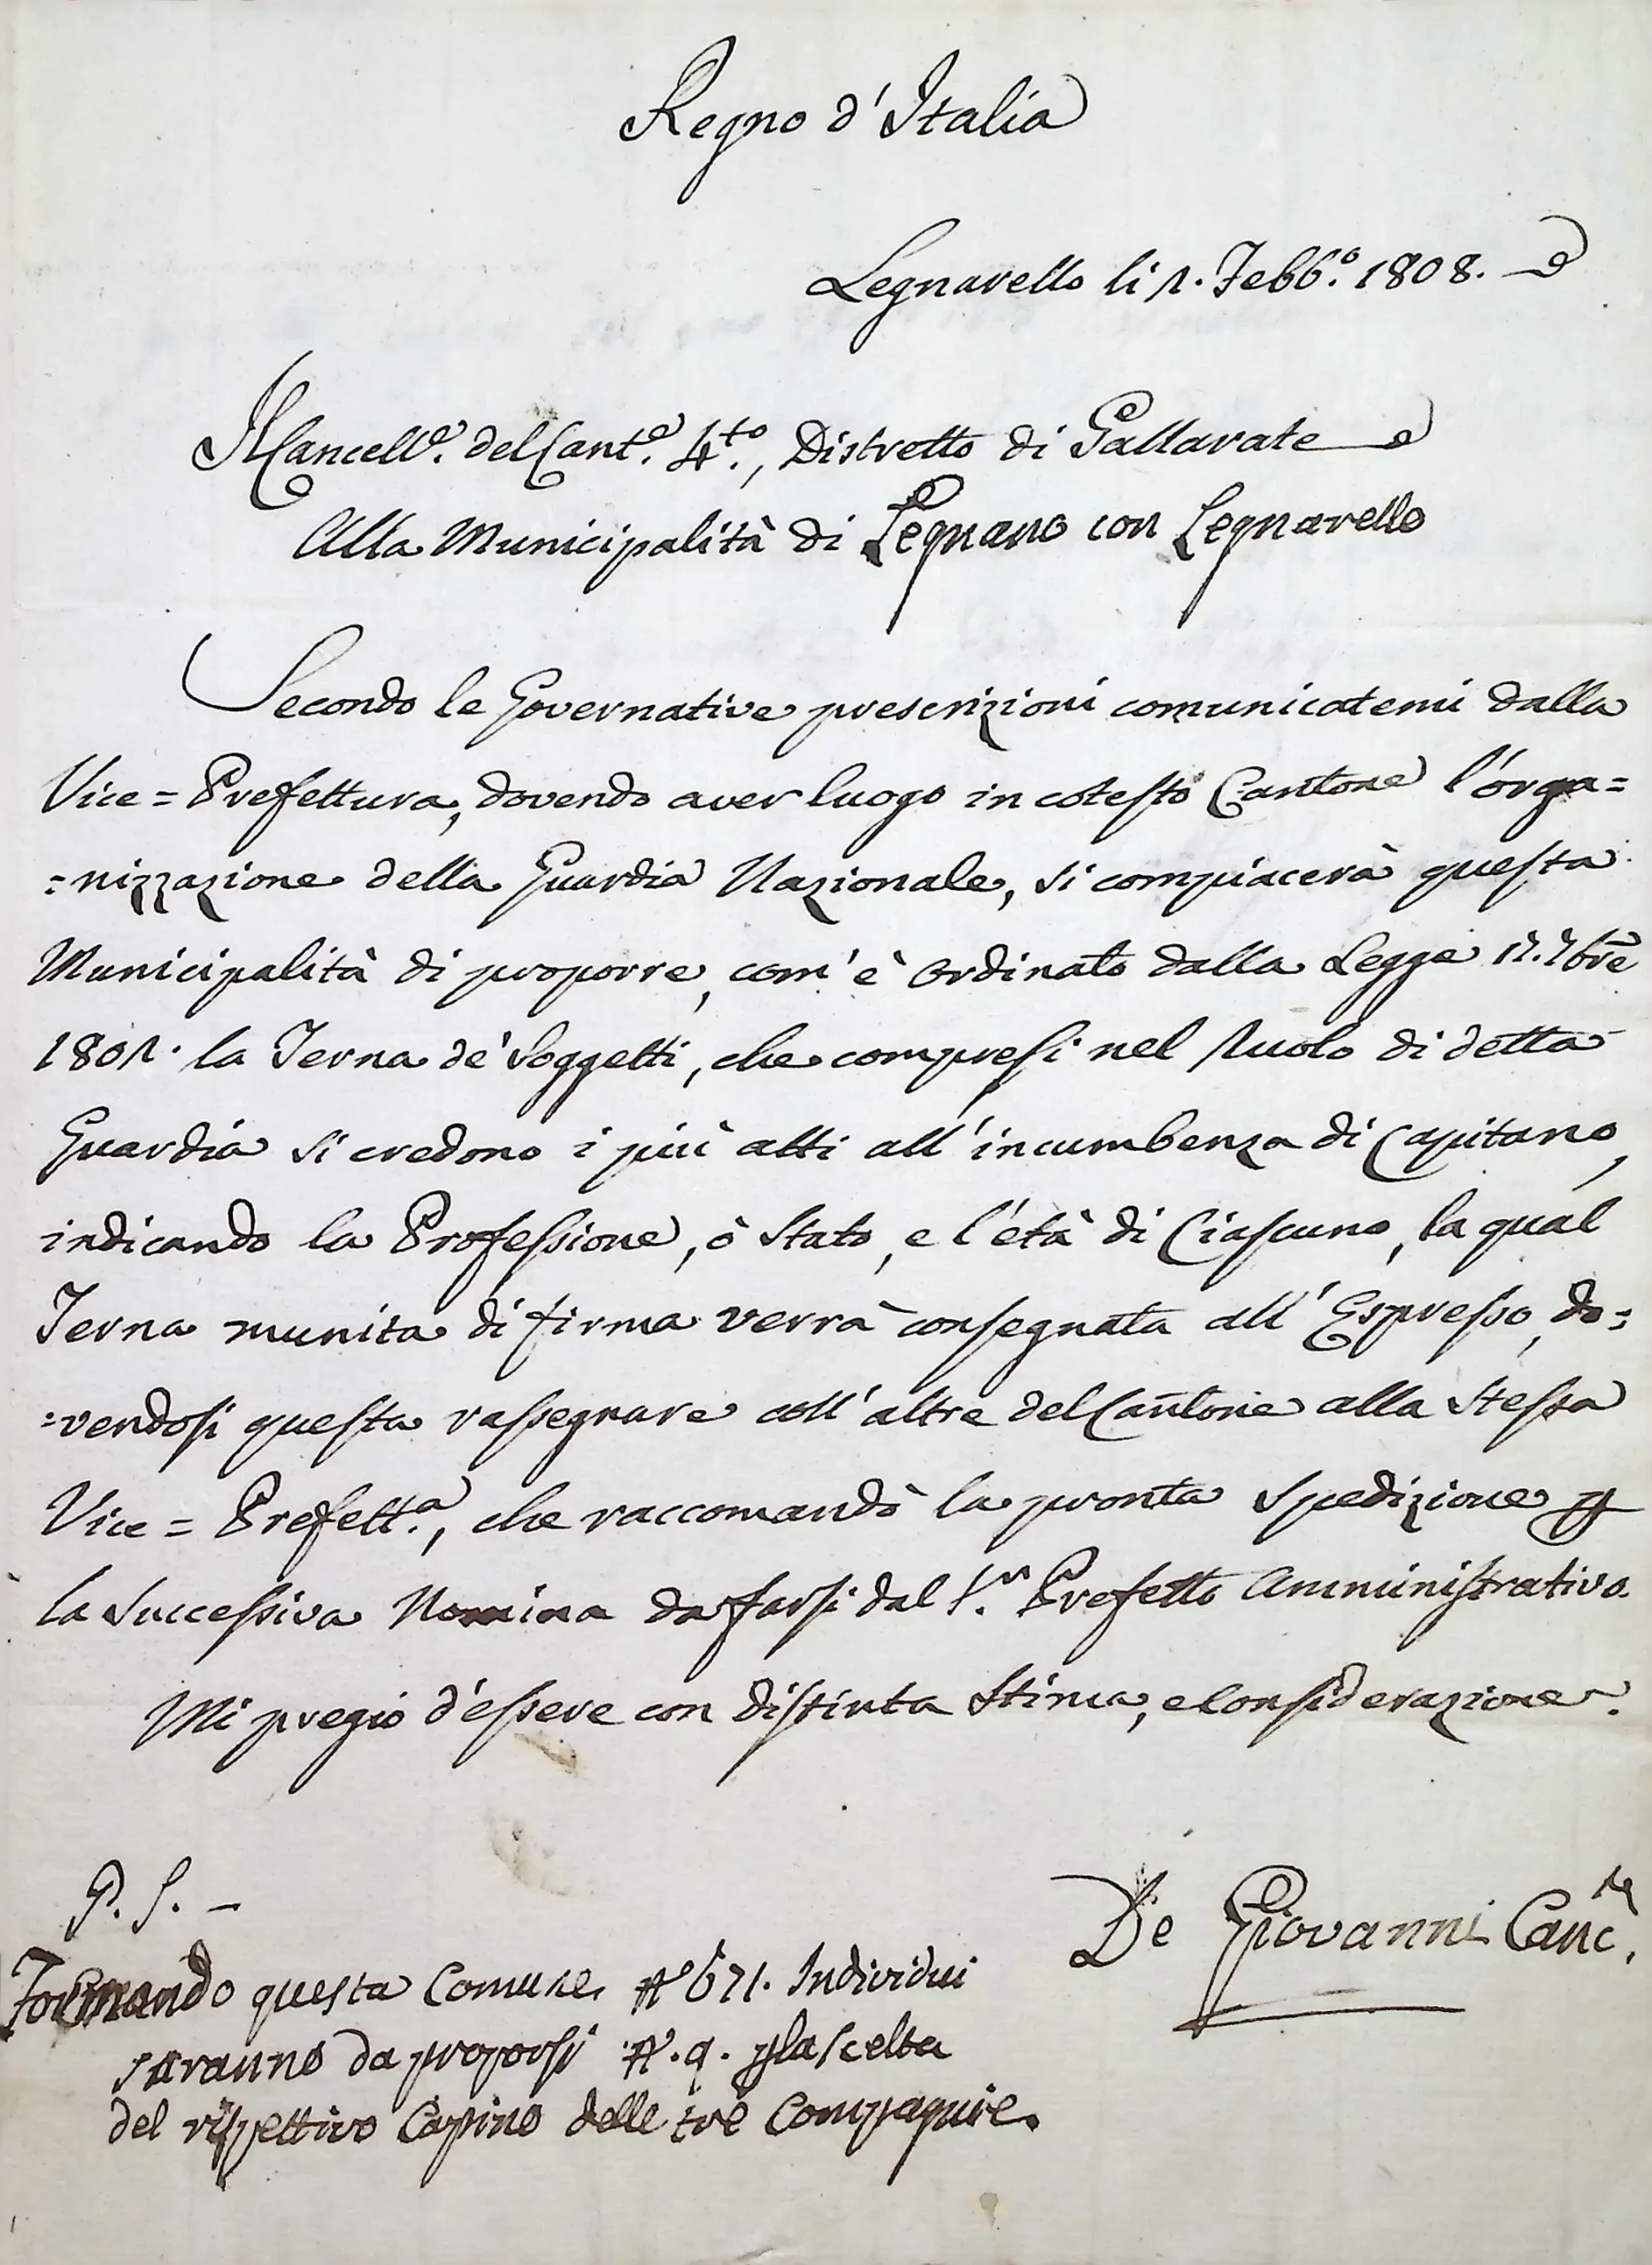 Regno d'Italia
Legnarello li 1. Febb.º 1808.
Il Cancell.e del Cant.e 4.to, Distretto di Gallarate
Alla Municipalità di Legnano con Legnarello
Secondo le Governative prescrizioni comunicatemi dalla
Vice = Prefettura, dovendo aver luogo in cotesto Cantone l'orga=
=nizzazione della Guardia Nazionale, si compiacerà questa
Municipalità di proporre, com'è ordinato dalla Legge 11. 7bre
1801. la Terna de' Soggetti, che compresi nel Ruolo di detta
Guardia si credono i più atti all'incumbenza di Capitano,
indicando la Professione, ò Stato, e l'età di Ciascuno, la qual
Terna munita di firma verrà consegnata all'Espresso, do=
=vendosi questa rassegnare coll'altre del Cantone alla Stessa
Vice = Prefett.a, che raccomandò la pronta spedizione p
la Successiva Nomina da farsi dal S.r Prefetto Amministrativo.
Mi pregio d'essere con distinta Stima, e Considerazione.
P. S. –
De Giovanni Canc.re
Formando questa Comune N.º 671. Individui
saranno da proporsi N.º 9. p la scelta
del rispettivo Capino delle trè Compagnie.